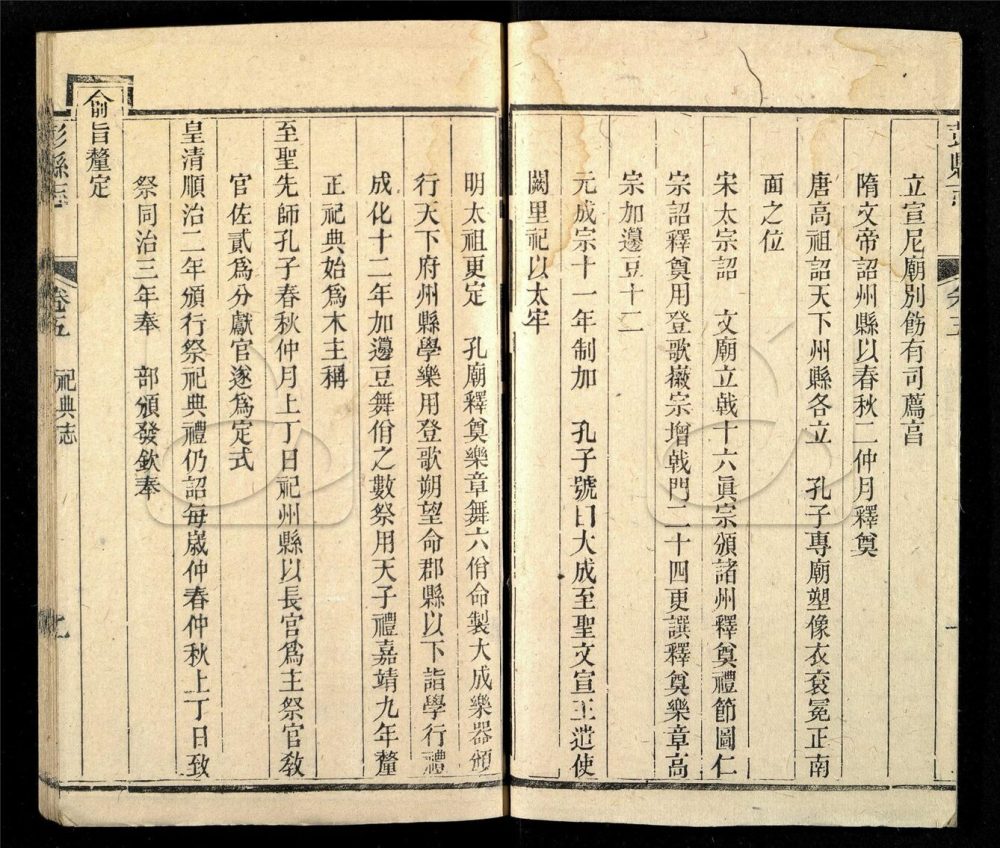 彭縣志
立宣尼廟別飭有司薦享
隋文帝詔州縣以春秋二仲月釋奠
唐高祖詔天下州縣各立　孔子專廟塑像衣袞冕正南
面之位
宋太宗詔　文廟立戟十六眞宗頒諸州釋奠禮節圖仁
宗詔釋奠用登歌徽宗增戟門二十四更譔釋奠樂章高
宗加籩豆十二
元成宗十一年制加　孔子號曰大成至聖文宣王遣使
闕里祀以太牢
明太祖更定　孔廟釋奠樂章舞六佾命製大成樂器頒
行天下府州縣學樂用登歌朔望命郡縣以下詣學行禮
成化十二年加籩豆舞佾之數祭用天子禮嘉靖九年釐
正祀典始爲木主稱
至聖先師孔子春秋仲月上丁日祀州縣以長官爲主祭官敎
官佐貳爲分獻官遂爲定式
皇清順治二年頒行祭祀典禮仍詔每歲仲春仲秋上丁日致
祭同治三年奉　部頒發欽奉
諭旨釐定
彭縣志　卷五　祀典志